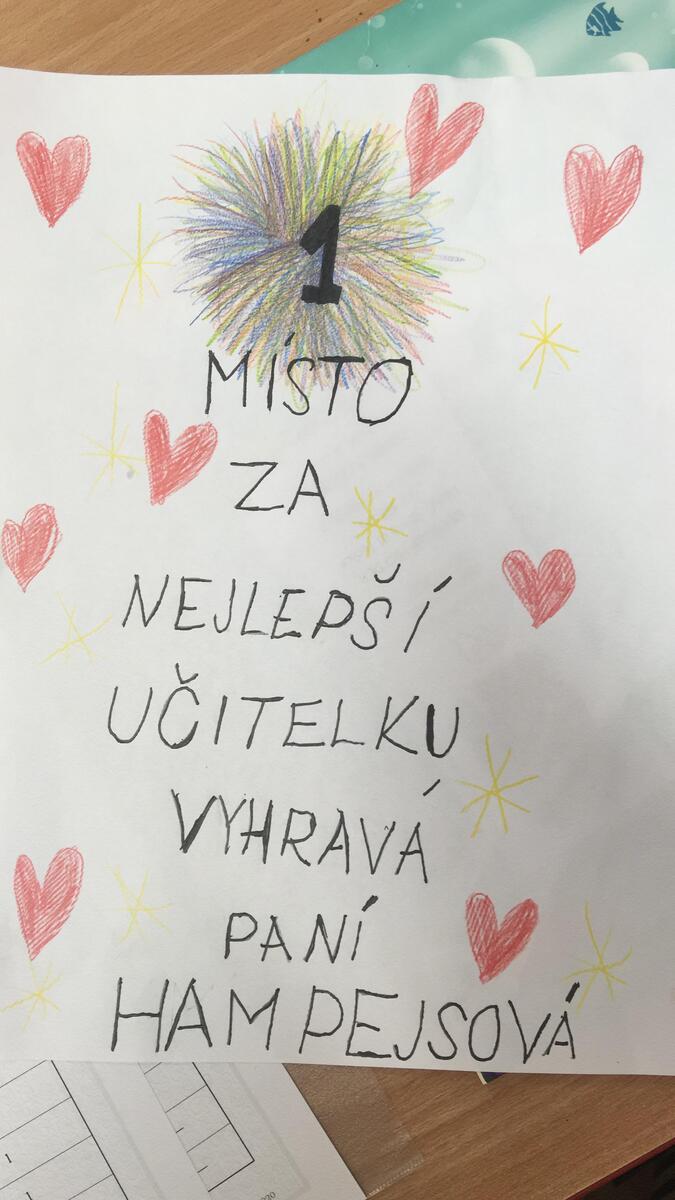 1
MÍSTO
ZA
NEJLEPŠÍ
UČITELKU
VYHRAVÁ
PANÍ
HAMPEJSOVÁ